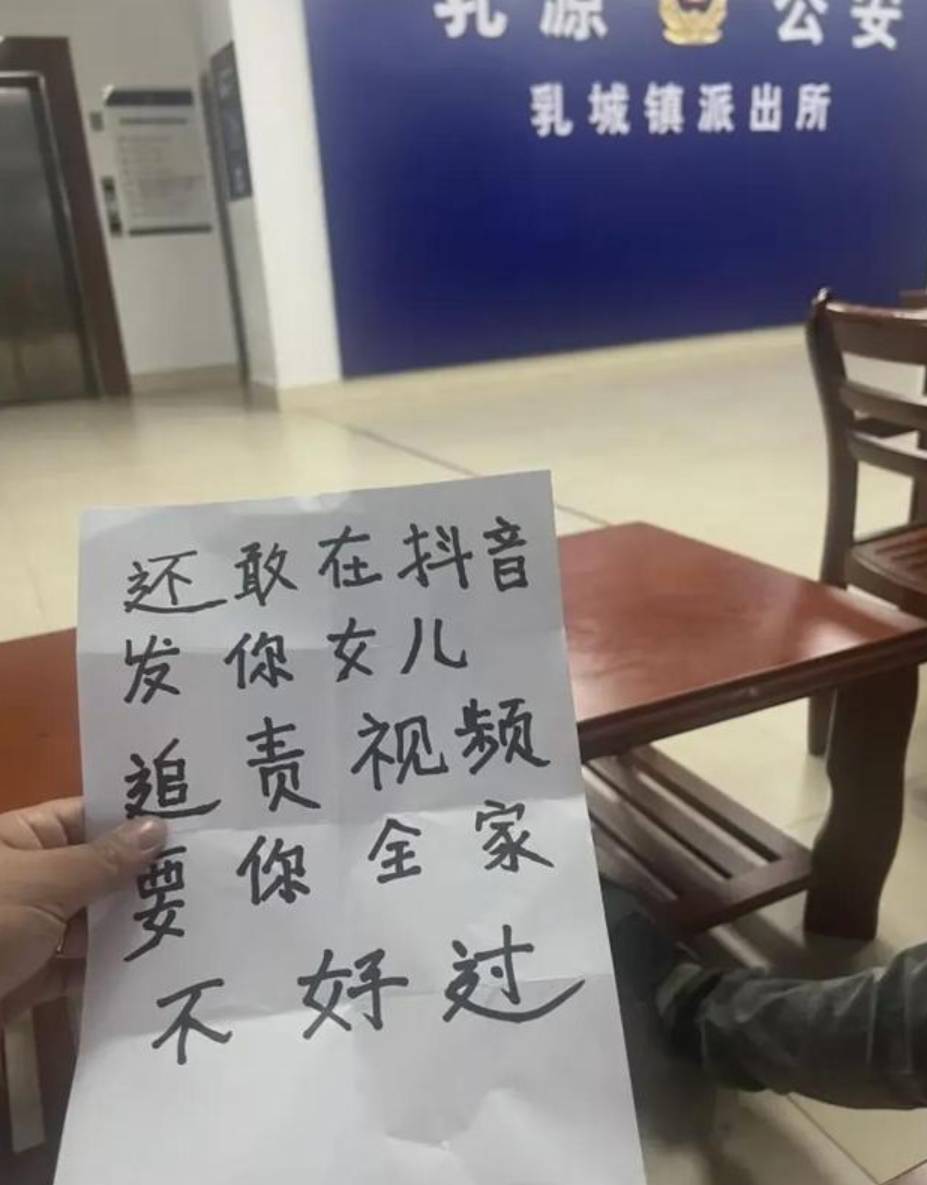 乳源 公安
乳城镇派出所
还敢在抖音
发你女儿
追责视频
要你全家
不好过